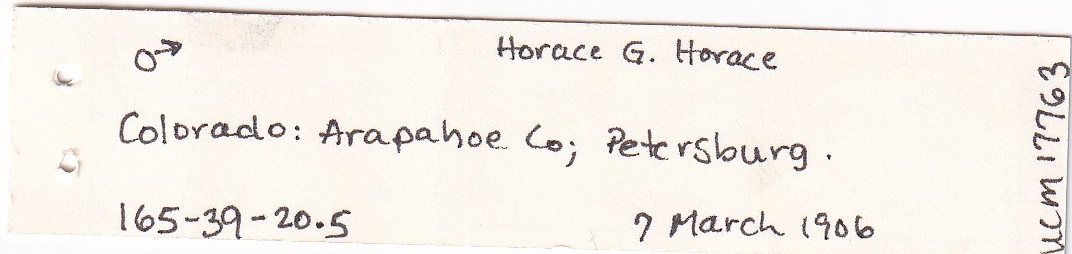 ♂ Horace G. Horace
Colorado: Arapahoe Co; Petersburg.
165-39-20.5 7 March 1906
UCM 17763